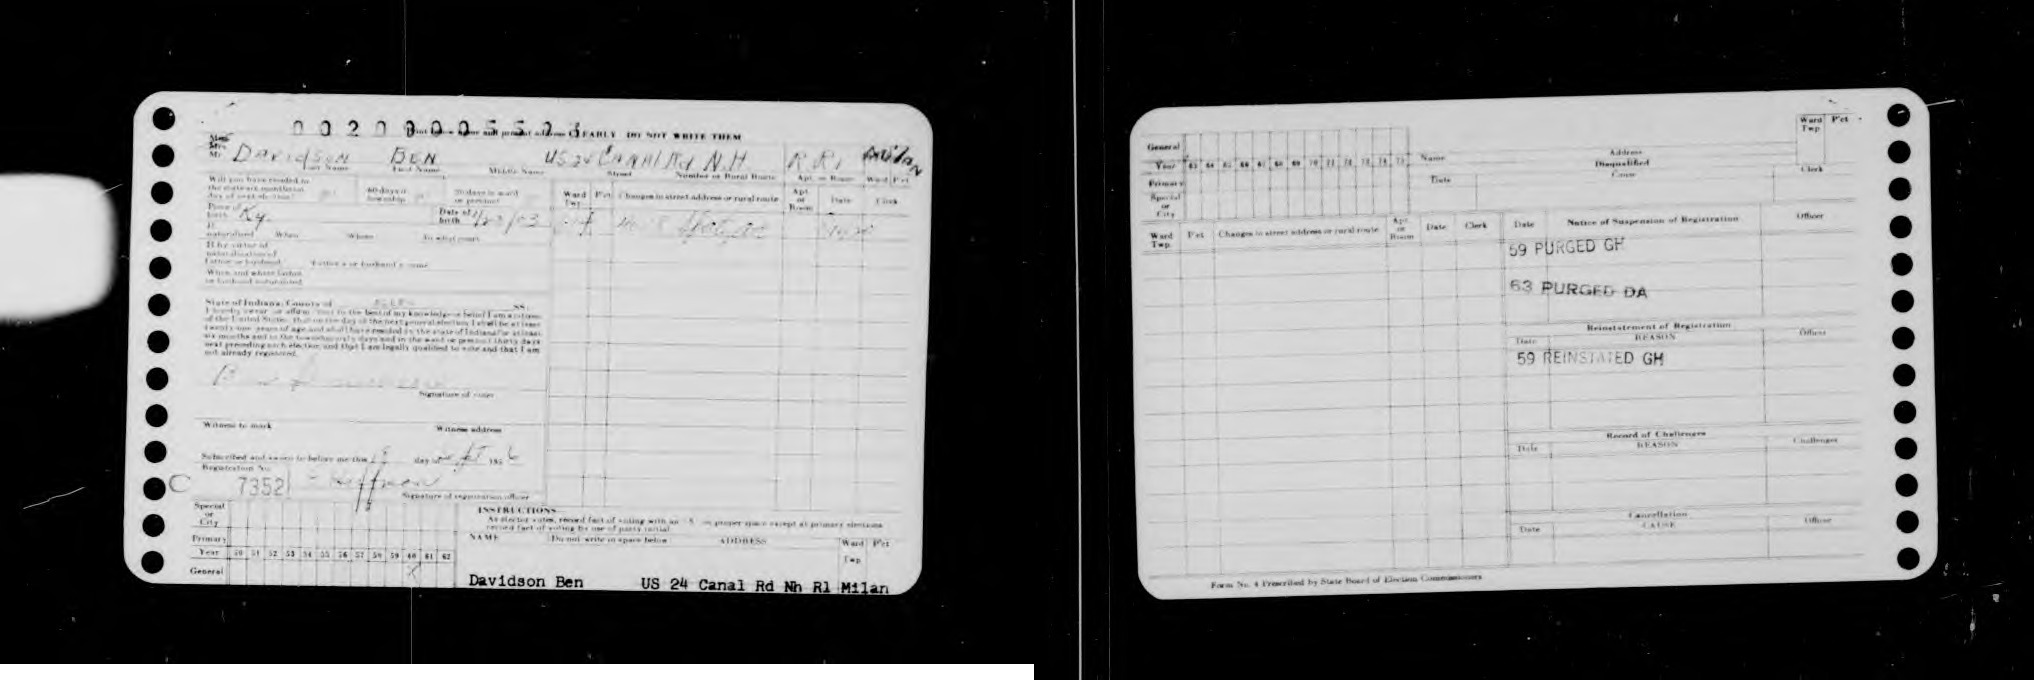 0020005523
Print your name and present address CLEARLY DO NOT WRITE THEM
Mrs
Mr DAVIDSON BEN US 24 CANAL Rd N.H R R 1 Milan
Last Name First Name Middle Name Street Number or Rural Route Apt. or Room Ward Pct
Will you have resided in the state six months on day of next election? 60 days in township 30 days in ward or precinct
Ward Twp. Pct Changes to street address or rural route Apt. or Room Date Clerk
Place of birth Ky. Date of birth
If naturalized When Where To what court
If by virtue of naturalization of father or husband Father's or husband's name
When and where father or husband naturalized
State of Indiana, County of ss.
I hereby swear or affirm that to the best of my knowledge or belief I am a citizen
of the United States, that on the day of the next general election I shall be at least
twenty-one years of age and shall have resided in the state of Indiana for at least
six months and in the township sixty days and in the ward or precinct thirty days
next preceding such election and that I am legally qualified to vote and that I am
not already registered.
Signature of voter
Witness to mark Witness address
Subscribed and sworn to before me this day of 195
Registration No.
C 7352
Signature of registration officer
Special or City
Primary
Year 50 51 52 53 54 55 56 57 58 59 60 61 62
General X
INSTRUCTIONS
As elector votes, record fact of voting with an X in proper space except at primary elections
record fact of voting by use of party initial
NAME Do not write in space below ADDRESS Ward Twp Pct
Davidson Ben US 24 Canal Rd Nh R1 Milan
General
Year 63 64 65 66 67 68 69 70 71 72 73 74 75
Primary
Special or City
Name Address Ward Twp Pct
Disqualified
Date Cause Clerk
Ward Twp. Pct Changes to street address or rural route Apt. or Room Date Clerk
Date Notice of Suspension of Registration Officer
59 PURGED GH
63 PURGED DA
Reinstatement of Registration
Date REASON Officer
59 REINSTATED GH
Record of Challenges
Date REASON Challenger
Cancellation
Date CAUSE Officer
Form No. 4 Prescribed by State Board of Election Commissioners